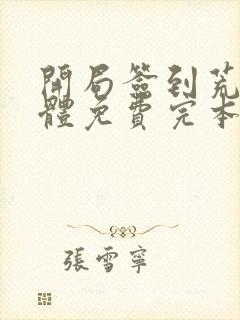 開局簽到荒
體免費完本
張雪寧